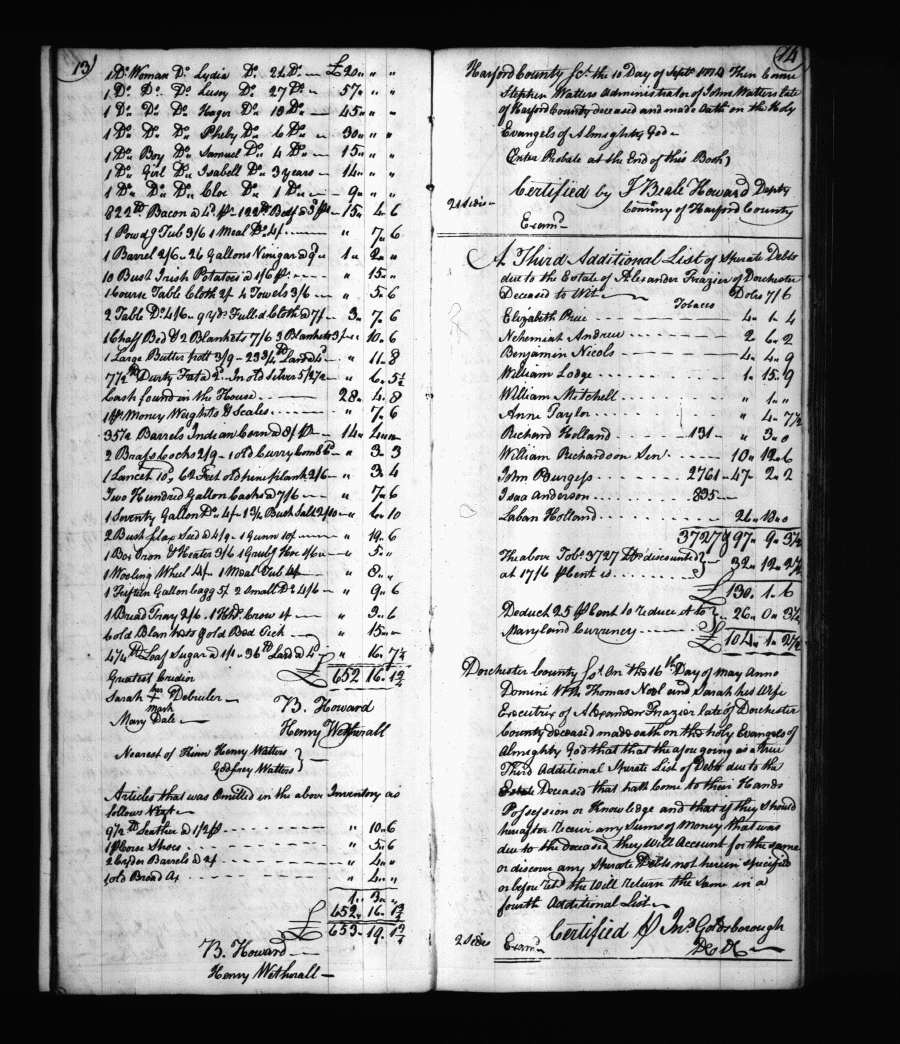 13
1 Do Woman Do Lydia Do 24 Do £ 20 " "
1 Do Do Do Lucy Do 27 Do 57 " "
1 Do Do Do Hager Do 10 Do 45 " "
1 Do Do Do Pheby Do 6 Do 30 " "
1 Do Boy Do Samuel Do 4 Do 15 " "
1 Do Girl Do Isabell Do 3 years 14 " "
1 Do Do Do Cloe Do 1 Do 9 " "
822 lb Bacon @ 4d 15 4 6
1 Powdg Tub 3/6 1 Meal Do 4/ " 7 6
1 Barrel 2/6 26 Gallons Vinigar @ 9d 1 2 "
10 Bush Irish Potatoes @ 1/6 " 15 "
1 Course Table Cloth 2/ 4 Towels 3/6 " 5 6
2 Table Do 4/6 9 yds Full'd Cloth @ 7/ 3 7 6
1 half Bed & 2 Blankets 7/6 3 Blankets 3/ 10 6
1 Large Butter pott 3/9 23 3/4 lb Lard @ 4d " 11 8
77 1/2 lb Durty Fat @ 2d In old Silver 5/2 1/2 " 6 5 1/2
Cash found in the House 28 4 8
1 Money Weights & Scales " 7 6
35 1/2 Barrels Indean Corn @ 8/ 14 4 "
2 Brass Cocks 2/9 1 old Curry Comb 6d " 3 3
1 Lancet 10d 62 Feet old pine plank 2/6 " 3 4
Two Hundred Gallon Casks @ 7/6 " 7 6
1 Seventy Gallon Do 4/ 1 3/4 Bush Salt 2/10 " 6 10
2 Bush flax Seed @ 4/9 1 Gunn 10/ " 19 6
1 Box Iron & Heater 3/6 1 Grubg Hoe 1/6 " 5 "
1 Wooling Wheel 4/ 1 Meal Tub 4/ " 8 "
1 Fifteen Gallon Cagg 5/ 2 Small Do 4/6 " 9 6
1 Bread Tray 2/6 " 3 6
6 old Blankets & old Bed Tick " 15 "
47 1/4 lb Loaf Sugar @ 1/1 36 lb Lard @ 4d " 16 7 1/4
£ 652 16 1 3/4
Greatest Creditor
Sarah her + mark Debruler
Mary Dale
B. Howard
Henry Wetherall
Nearest of Kinn Henry Watters
Godfrey Watters
Articles that was Omitted in the above Inventory as
follows Next
9 1/2 lb Leather @ 1/2 " 10 6
1 Horse Shoes " 5 6
2 Cyder Barrels @ 2/ " 4 "
1 old Broad Ax " 4 "
1 3 "
652 16 1 3/4
£ 653 19 1 3/4
B. Howard
Henry Wetherall
14
Harford County Sct. the 10 Day of Septr 1774 Then Came
Stephen Watters Administrator of John Watters late
of Harford County deceased and made Oath on the Holy
Evangels of Almighty God
(Enter Probate at the End of this Book)
Certified by J Beale Howard Depty
Comry of Harford County
2 Sides
Examd
A Third Additional List of Sperate Debts
due to the Estate of Alexander Frazier of Dorchester
Deceased to Wit Tobacco Dols 7/6
Elizabeth Price 4 1 4
Nehemiah Andrew 2 6 2
Benjamin Nicols 4 4 9
William Lodge 1 15 9
William Mitchell " 1 "
Anne Taylor " 4 7 1/2
Richard Holland 131 " 3 0
William Richardson Senr 10 12 6
John Burgess 2761 47 2 2
Isaa Anderson 835
Laban Holland 26 18 0
3727 97 9 3 1/2
The above Tobo 3727 lb discounted
at 17/6 P Cent is 32 12 2 1/2
£ 130 1 6
Deduct 25 P Cent to reduce it to 26 0 3 1/2
Maryland Currency
£ 104 1 2 1/2
Dorchester County Sct. On the 16th Day of May Anno
Domini Thomas Noel and Sarah his Wife
Executrix of Alexander Frazier late of Dorchester
County deceased made oath on the holy Evangels of
Almighty God that that the afore going is a true
Third Additional Sperate List of Debts due to the
Estate Deceased that hath Come to their Hands
Possession or Knowledge and that if they Should
hereafter receive any Sums of Money that was
due to the deceased they Will Account for the same
or discover any Sperate Debts not herein specified
or before retd the Will return the Same in a
fourth Additional List
Certified P Jno Goldsborough
2 Sides Examd